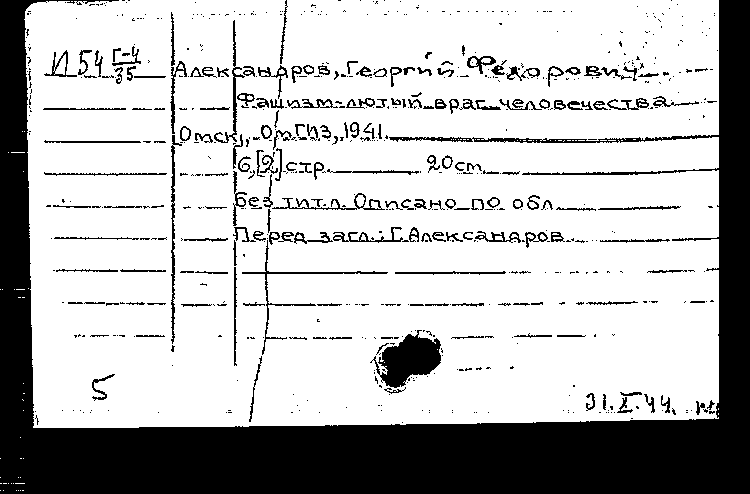 И 54 Г-4/35 Александров, Георгий Фёдорович
Фашизм-лютый враг человечества
Омск, ОмГИЗ, 1941.
6,[2] стр. 20 cm.
Без тит.л. Описано по обл.
Перед загл.: Г.Александров.
5
31.X.44.